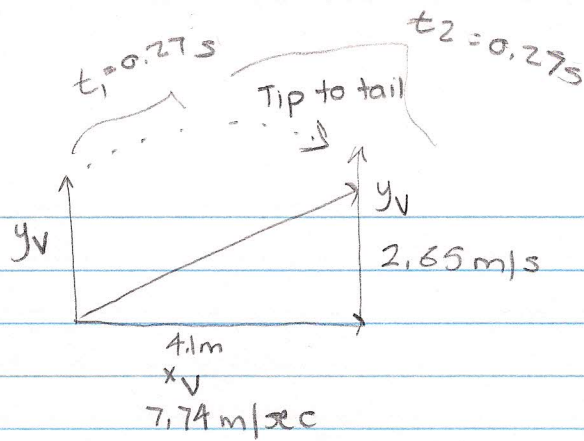 t₁=0.27s
t2=0.27s
Tip to tail
yv
yv
2.65m/s
4.1m
xv
7.74m/sec